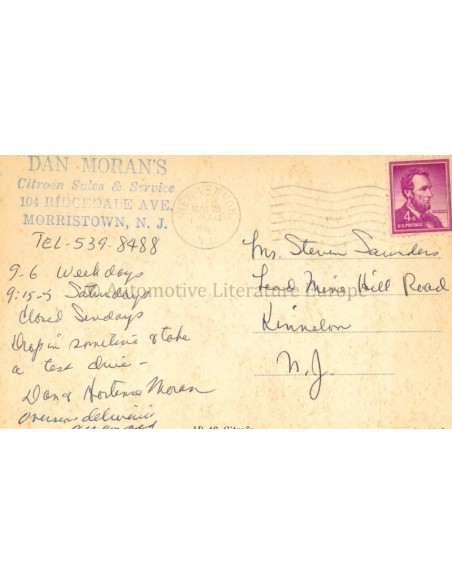 DAN MORAN'S
Citroen Sales & Service
104 RIDGEDALE AVE.
MORRISTOWN, N. J.
TEL-539-8488
9-6 Weekdays
9:15-5 Saturdays
Closed Sundays
Drop in sometime & take
a test drive -
Dan & Hortense Moran
overseas deliveries
arranged
4¢
U.S. POSTAGE
Mr. Steven Saunders
Lead Mine Hill Road
Kinnelon
N.J.
Automotive Literature Europe